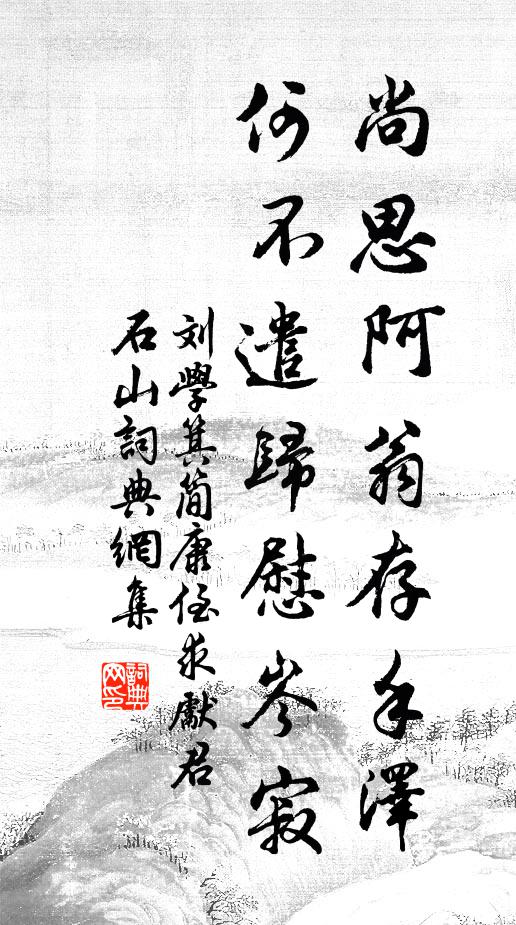 尚思阿翁存手澤
何不遣歸慰岑寂
刘學箕簡康侄求獻君
石山詞典網集
詞典網印